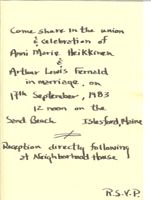 Come share in the union
& celebration of
Anni Marie Heikkinen
&
Arthur Louis Fernald
in marriage, on
17th September, 1983
12 noon on the
Sand Beach Islesford, Maine
Reception directly following
at Neighborhood House
R.S.V.P.